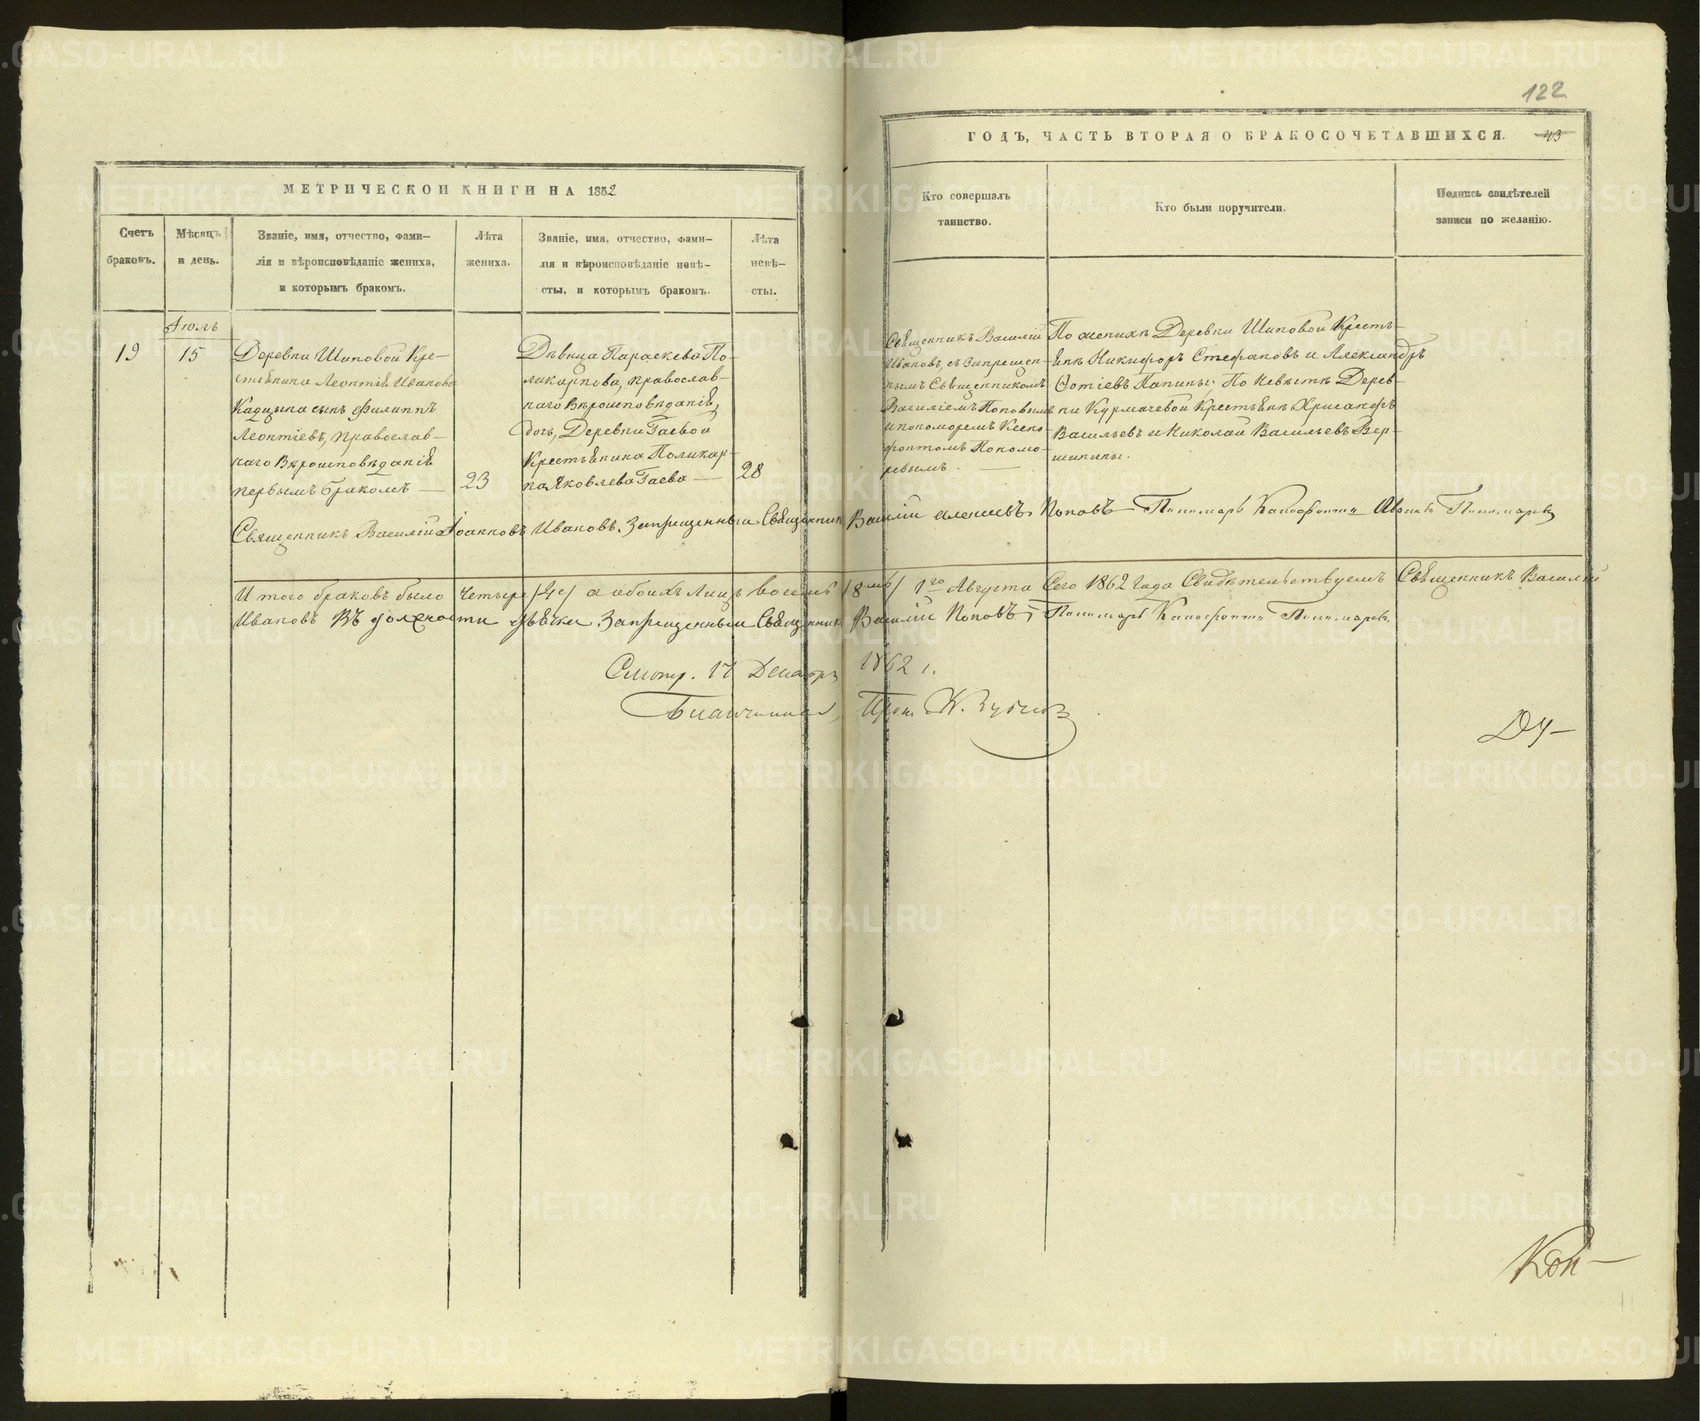 122
МЕТРИЧЕСКОЙ КНИГИ НА 1862
ГОДЪ, ЧАСТЬ ВТОРАЯ О БРАКОСОЧЕТАВШИХСЯ. 43
Счетъ
браковъ.
Мѣсяцъ
и день.
Званіе, имя, отчество, фами-
лія и вѣроисповѣданіе жениха,
и которымъ бракомъ.
Лѣта
жениха.
Званіе, имя, отчество, фами-
лія и вѣроисповѣданіе невѣ-
сты, и которымъ бракомъ.
Лѣта
невѣ-
сты.
Кто совершалъ
таинство.
Кто были поручители.
Подпись свидѣтелей
записи по желанію.
Іюль
19
15
Деревни Шиповой Кре-
стьянина Леонтія Иванова
Кадцына сынъ Филиппъ
Леонтіевъ, православ-
наго Вѣроисповѣданія
первымъ бракомъ
23
Дѣвица Параскева По-
ликарпова, православ-
наго Вѣроисповѣданія,
дочь, Деревни Гаевой
Крестьянина Поликар-
па Яковлева Гаева
28
Священникъ Василій
Ивановъ, съ Запрещен-
нымъ Священникомъ
Василіемъ Поповымъ
и пономаремъ Ксено-
фонтомъ Пономо-
ревымъ.
По женихѣ Деревни Шиповой Кресть-
яне Никифоръ Стефановъ и Александръ
Фотіевъ Папины. По невѣстѣ Дерев-
ни Курмачевой Крестьяне Хрисанфъ
Васильевъ и Николай Васильевъ Вер-
шинины.
Священникъ Василій Іоанновъ Ивановъ. Запрещенный Священникъ Василій Алексѣевъ Поповъ Пономарь Ксенофонтъ Пономаревъ
Итого браковъ было четыре /4е/ а обоихъ лицъ восемь /8мь/ 1го Августа Сего 1862 Года Свидѣтельствуемъ Священникъ Василій
Ивановъ Въ должности дьячка Запрещенный Священникъ Василій Поповъ, Пономарь Ксенофонтъ Пономаревъ.
Смотр. 17 Декабря 1862 г.
Благочинный, Прот. К.
Ду-
Кон-